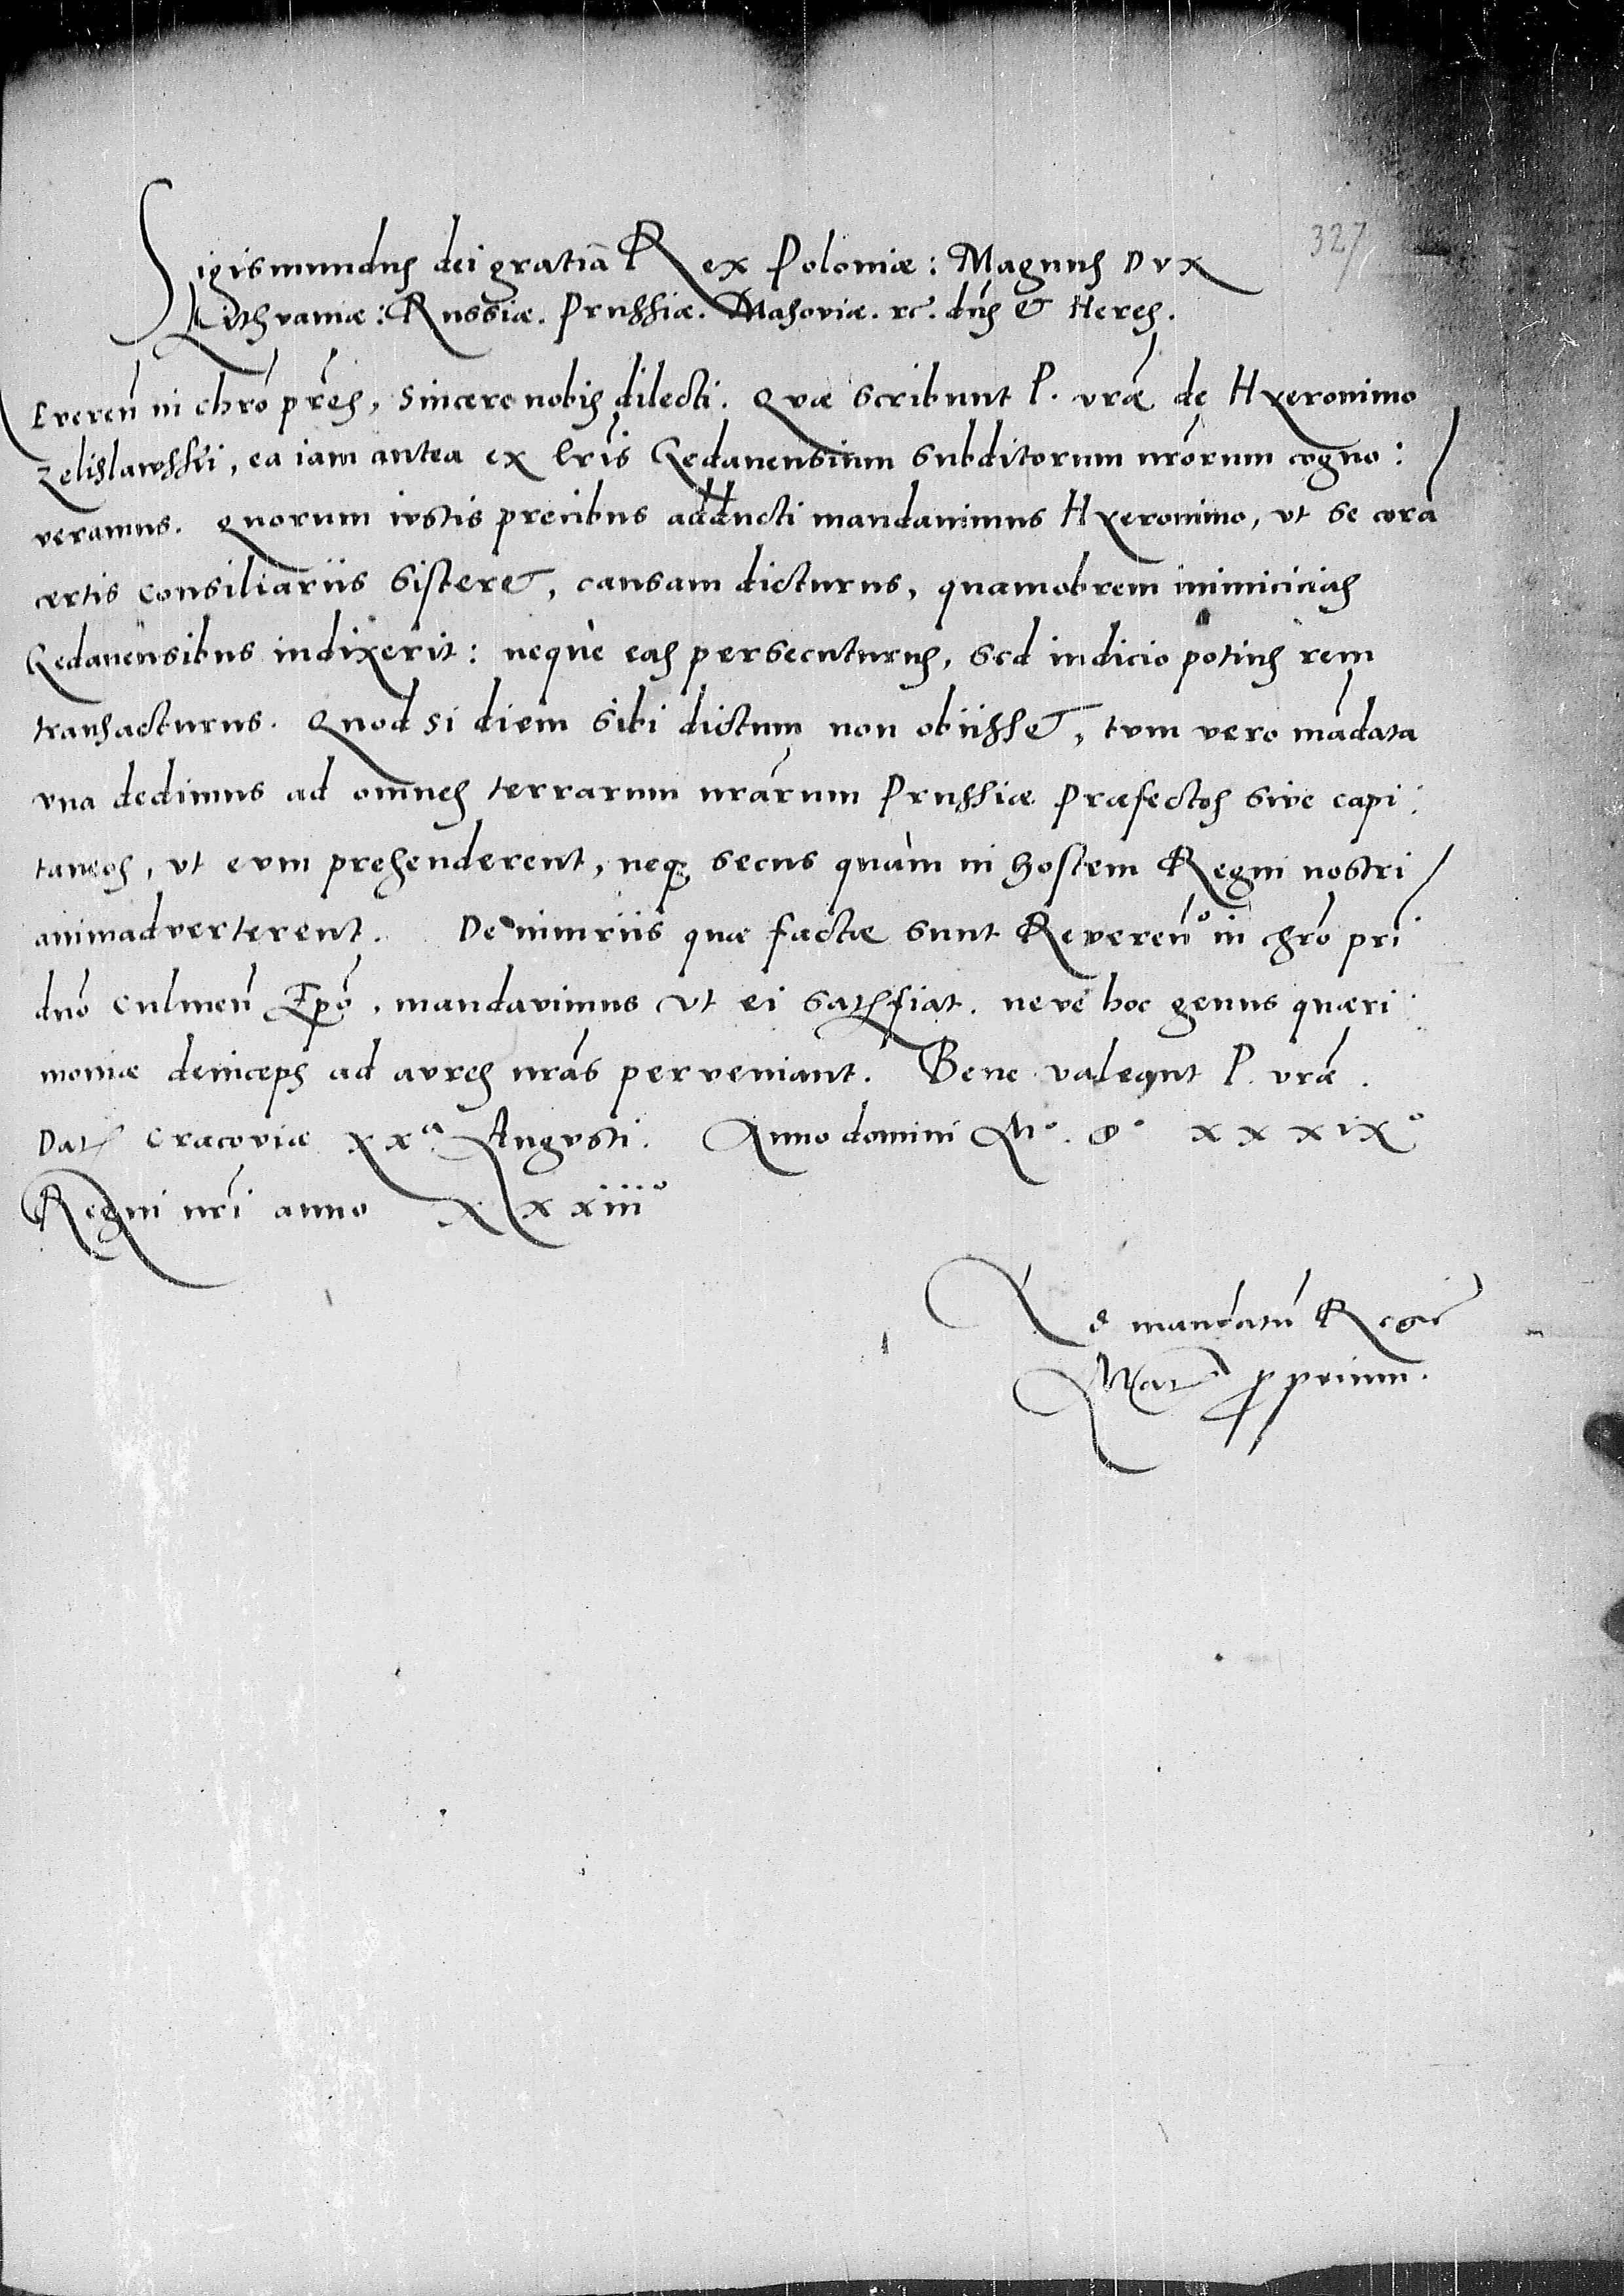 327
Sigismundus dei gratiā Rex Poloniæ: Magnus Dvx
Lithvaniæ: Russiæ. Prussiæ. Masoviæ. rc. dn̄s & Heres.
Evereñ in chrō prēs, sincere nobis dilecti. Qvæ scribunt P. vrǣ de Hyeronimo
Zelislawski, ea iam antea ex lrīs Gedanensium subditorum nrōrum cogno:
veramus. Quorum ivstis precibus adducti mandauimus Hyeronimo, vt se corā
certis consiliariis sisteret, causam dicturus, quamobrem inimicicias
Gedanensibus indixerit: nequè eas persecuturus, sed iudicio potius rem
transacturus. Quod si diem sibi dictum non obiisset, tvm vero mādata
vna dedimus ad omnes terrarum nrārum Prussiæ Præfectos sive capi:
taneos, vt evm prehenderent, neqꝫ secus quàm in hostem Regni nostri
animadverterent. De iniuriis quæ factæ sunt Revereñ° in chrō prī
dnō Culmeñ Epō, mandavimus vt ei satisfiat. neve hoc genus quæri:
moniæ deinceps ad avres nrās perveniant. Bene valeant P. vrǣ.
Dat Cracoviæ xxª. Augvsti. Anno domini M°. D° xxxix°
Regni nrī anno xxxiii°
Ad mandatū Regie
Mat proprium.